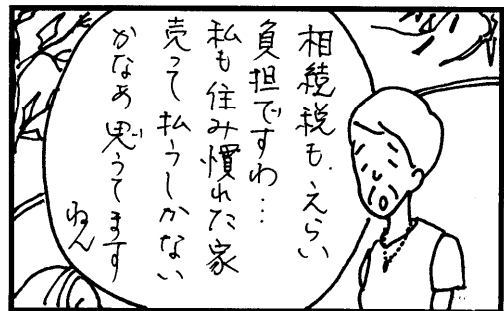 相続税も、えらい
負担ですわ…
私も住み慣れた家
売って払うしかない
かなあ思うてます
ねん